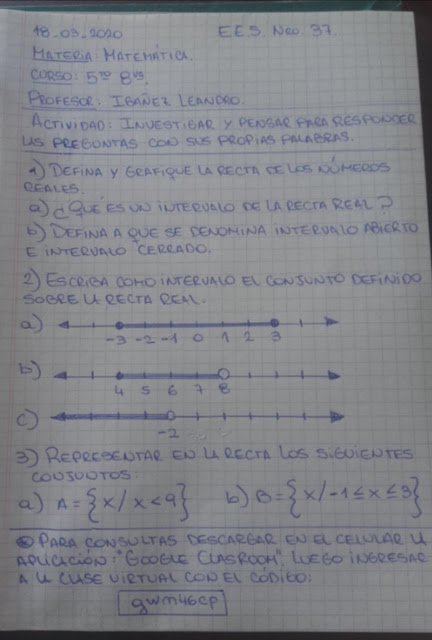 18.03.2020 E.E.S. Nro. 37.
MATERIA: MATEMÁTICA.
CURSO: 5TO 8VA.
PROFESOR: IBAÑEZ LEANDRO.
ACTIVIDAD: INVESTIGAR Y PENSAR PARA RESPONDER
LAS PREGUNTAS CON SUS PROPIAS PALABRAS.
1) DEFINA Y GRAFIQUE LA RECTA DE LOS NÚMEROS
REALES.
a) ¿QUÉ ES UN INTERVALO DE LA RECTA REAL?
b) DEFINA A QUE SE DENOMINA INTERVALO ABIERTO
E INTERVALO CERRADO.
2) ESCRIBA COMO INTERVALO EL CONJUNTO DEFINIDO
SOBRE LA RECTA REAL.
a)
-3 -2 -1 0 1 2 3
b)
4 5 6 7 8
c)
-2
3) REPRESENTAR EN LA RECTA LOS SIGUIENTES
CONJUNTOS:
a) A = {x/x<9} b) B = {x/-1≤x≤3}
PARA CONSULTAS DESCARGAR EN EL CELULAR LA
APLICACIÓN: "GOOGLE CLASROOM", LUEGO INGRESAR
A LA CLASE VIRTUAL CON EL CÓDIGO:
gwm46cp